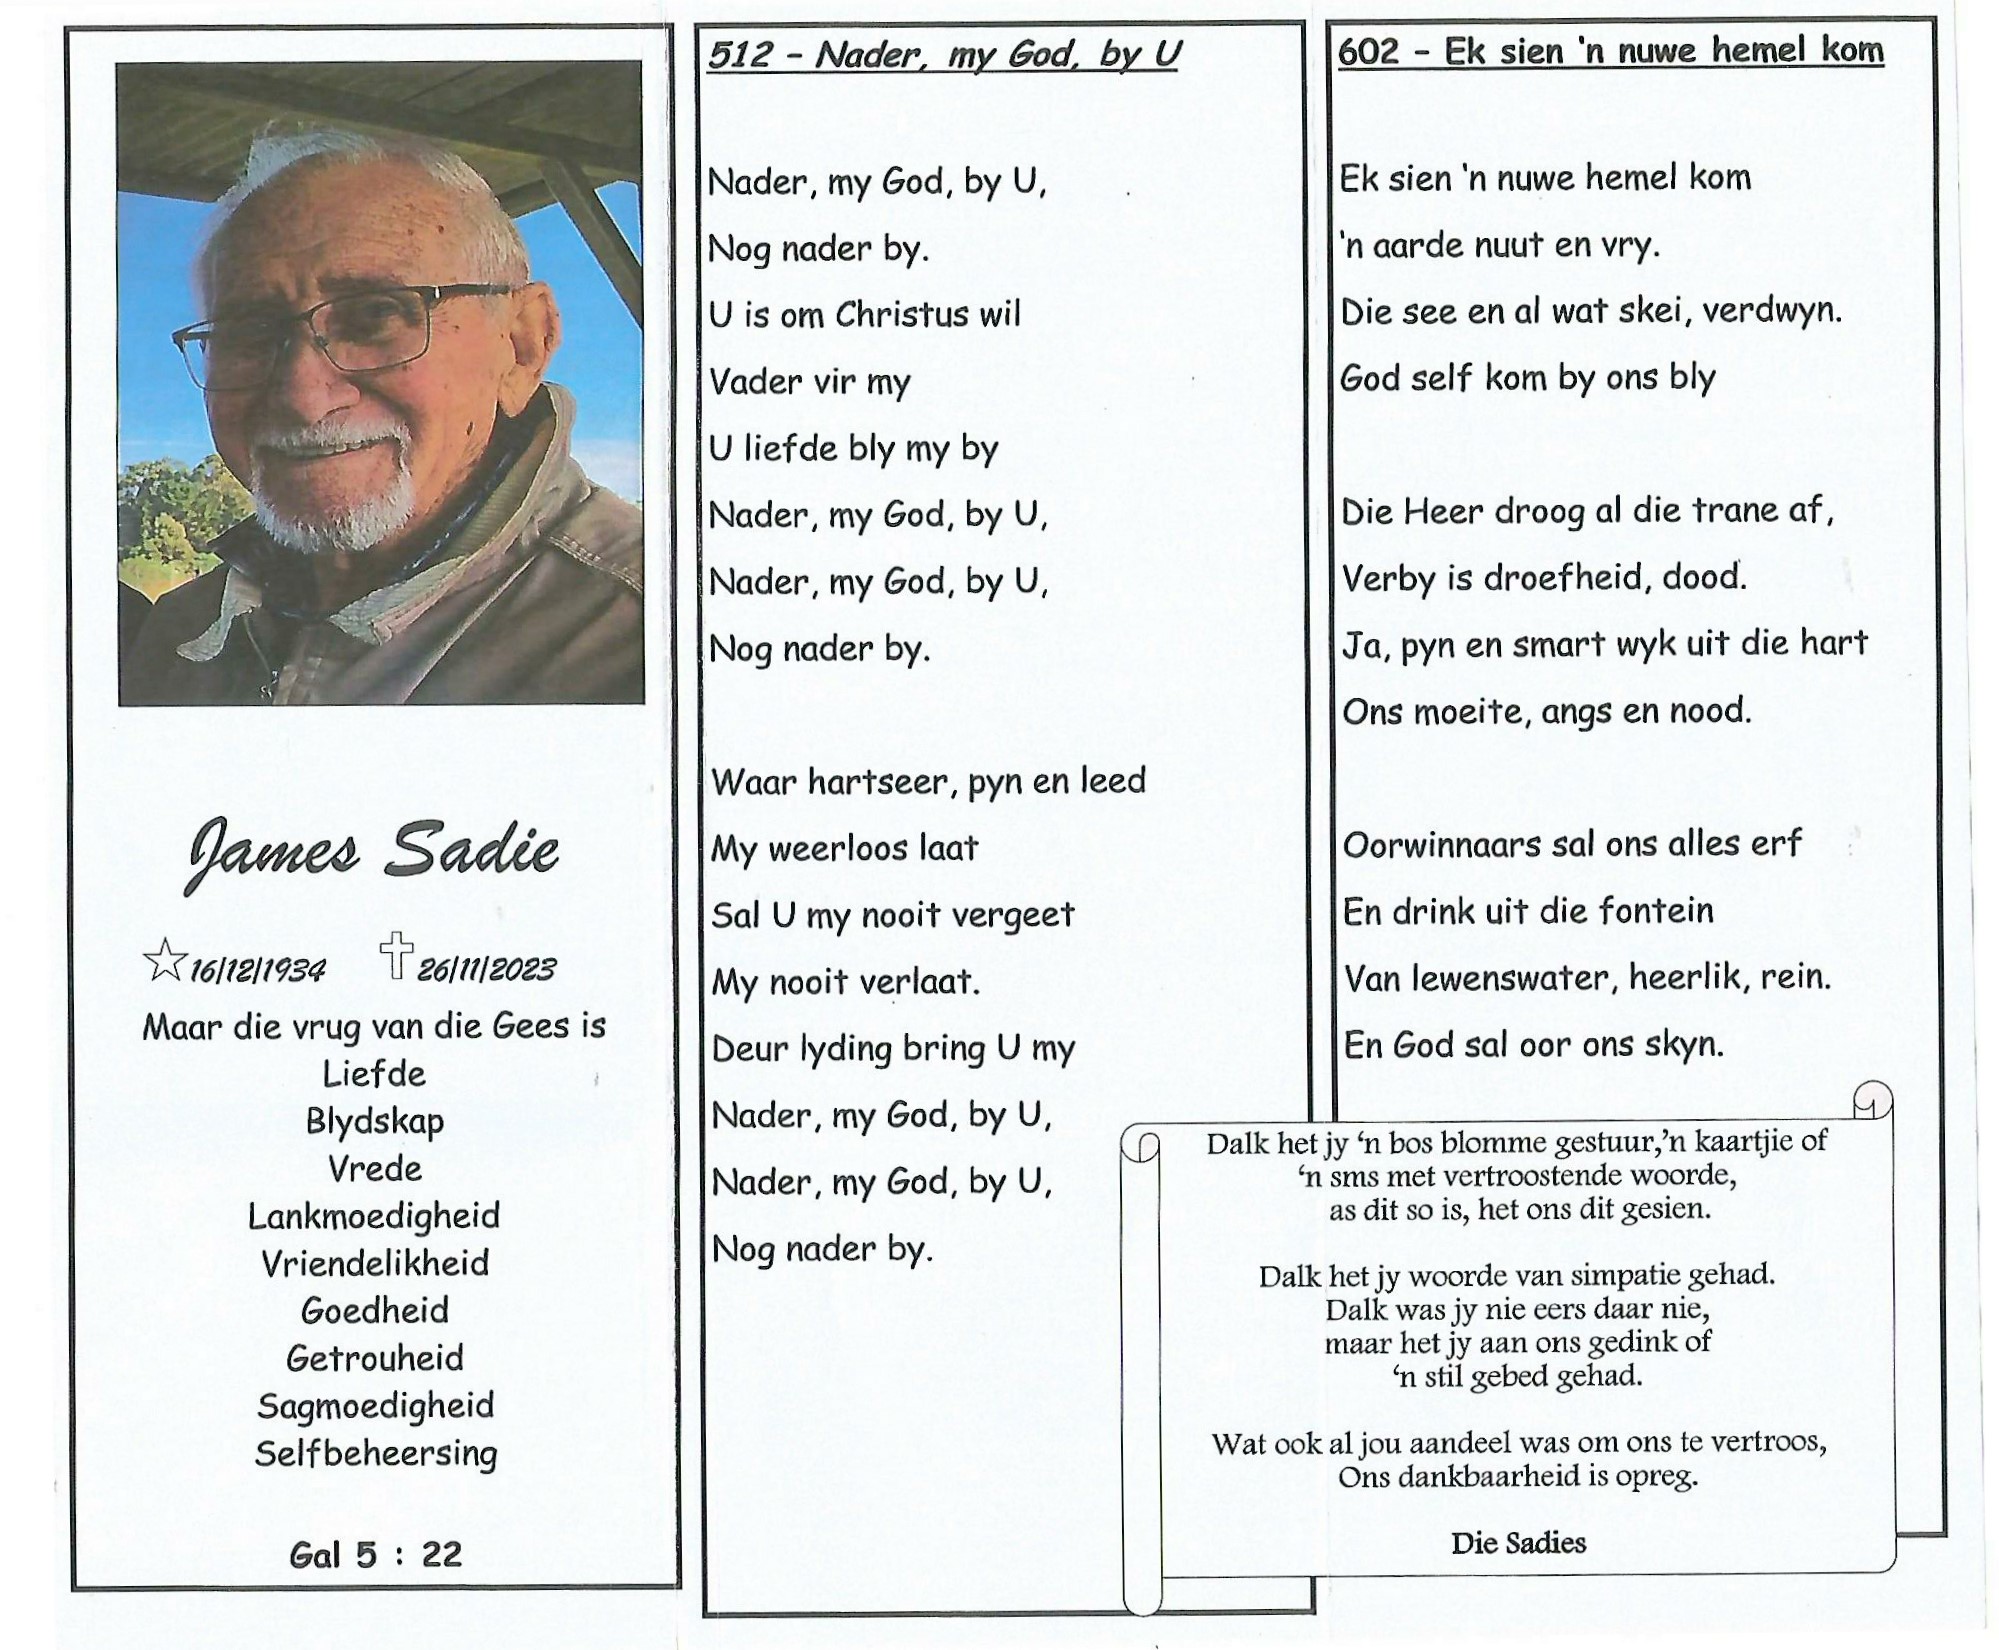 James Sadie
16/12/1934 26/11/2023
Maar die vrug van die Gees is
Liefde
Blydskap
Vrede
Lankmoedigheid
Vriendelikheid
Goedheid
Getrouheid
Sagmoedigheid
Selfbeheersing
Gal 5 : 22
512 - Nader, my God, by U
Nader, my God, by U,
Nog nader by.
U is om Christus wil
Vader vir my
U liefde bly my by
Nader, my God, by U,
Nader, my God, by U,
Nog nader by.
Waar hartseer, pyn en leed
My weerloos laat
Sal U my nooit vergeet
My nooit verlaat.
Deur lyding bring U my
Nader, my God, by U,
Nader, my God, by U,
Nog nader by.
602 - Ek sien 'n nuwe hemel kom
Ek sien 'n nuwe hemel kom
'n aarde nuut en vry.
Die see en al wat skei, verdwyn.
God self kom by ons bly
Die Heer droog al die trane af,
Verby is droefheid, dood.
Ja, pyn en smart wyk uit die hart
Ons moeite, angs en nood.
Oorwinnaars sal ons alles erf
En drink uit die fontein
Van lewenswater, heerlik, rein.
En God sal oor ons skyn.
Dalk het jy ‘n bos blomme gestuur,’n kaartjie of
‘n sms met vertroostende woorde,
as dit so is, het ons dit gesien.
Dalk het jy woorde van simpatie gehad.
Dalk was jy nie eers daar nie,
maar het jy aan ons gedink of
‘n stil gebed gehad.
Wat ook al jou aandeel was om ons te vertroos,
Ons dankbaarheid is opreg.
Die Sadies